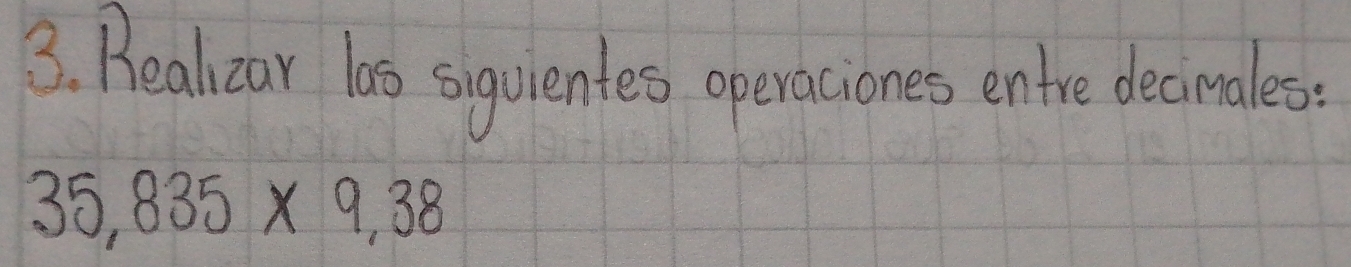 3. Realizar las siguientes operaciones entre decimales:
35,835 x 9,38